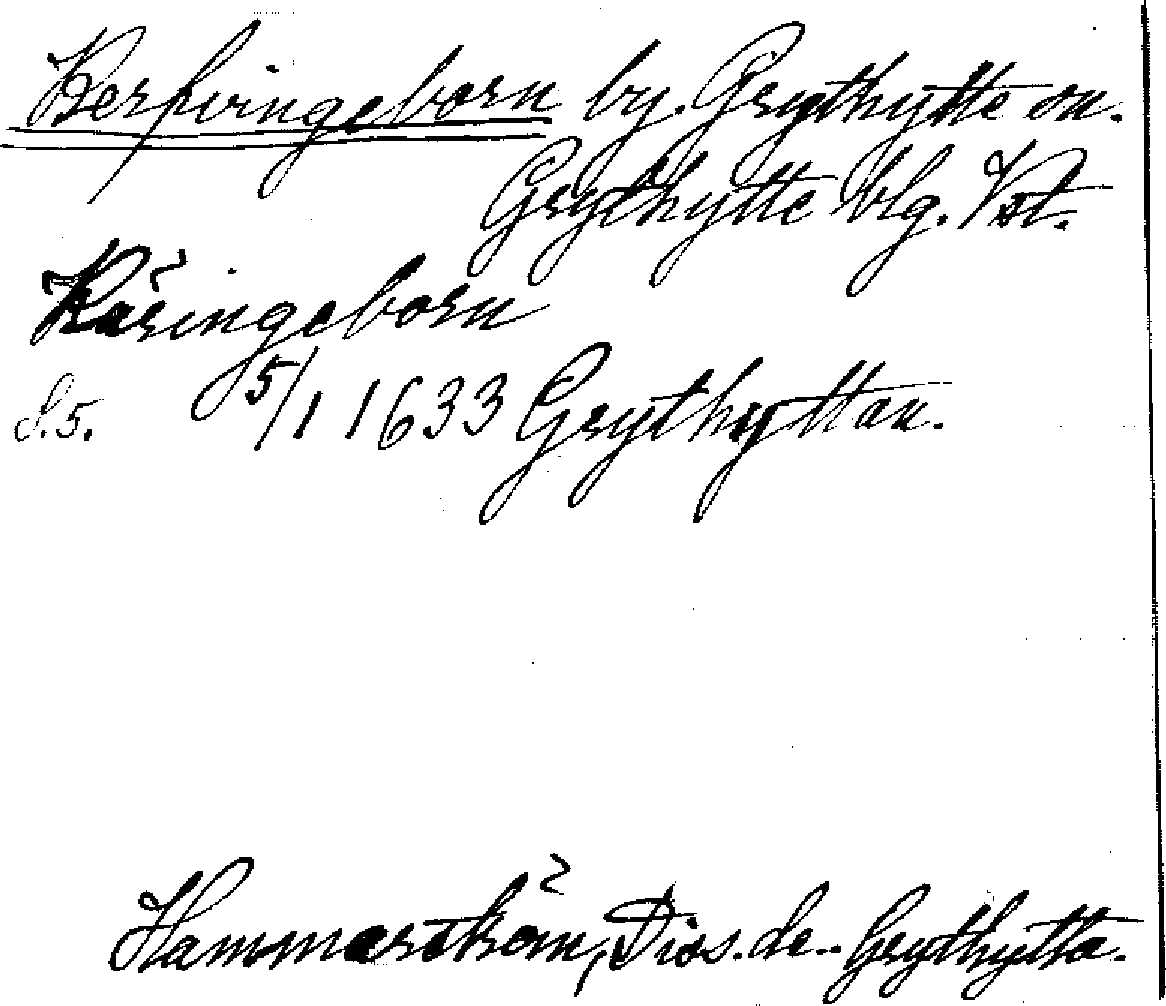 Kerfvingeborn by. Grythytte sn.
Grythytte blg. Vst.
Käringeborn
S.5. 5/1 1633 Grythyttan.
Hammarström, Diss. de Grythytta.